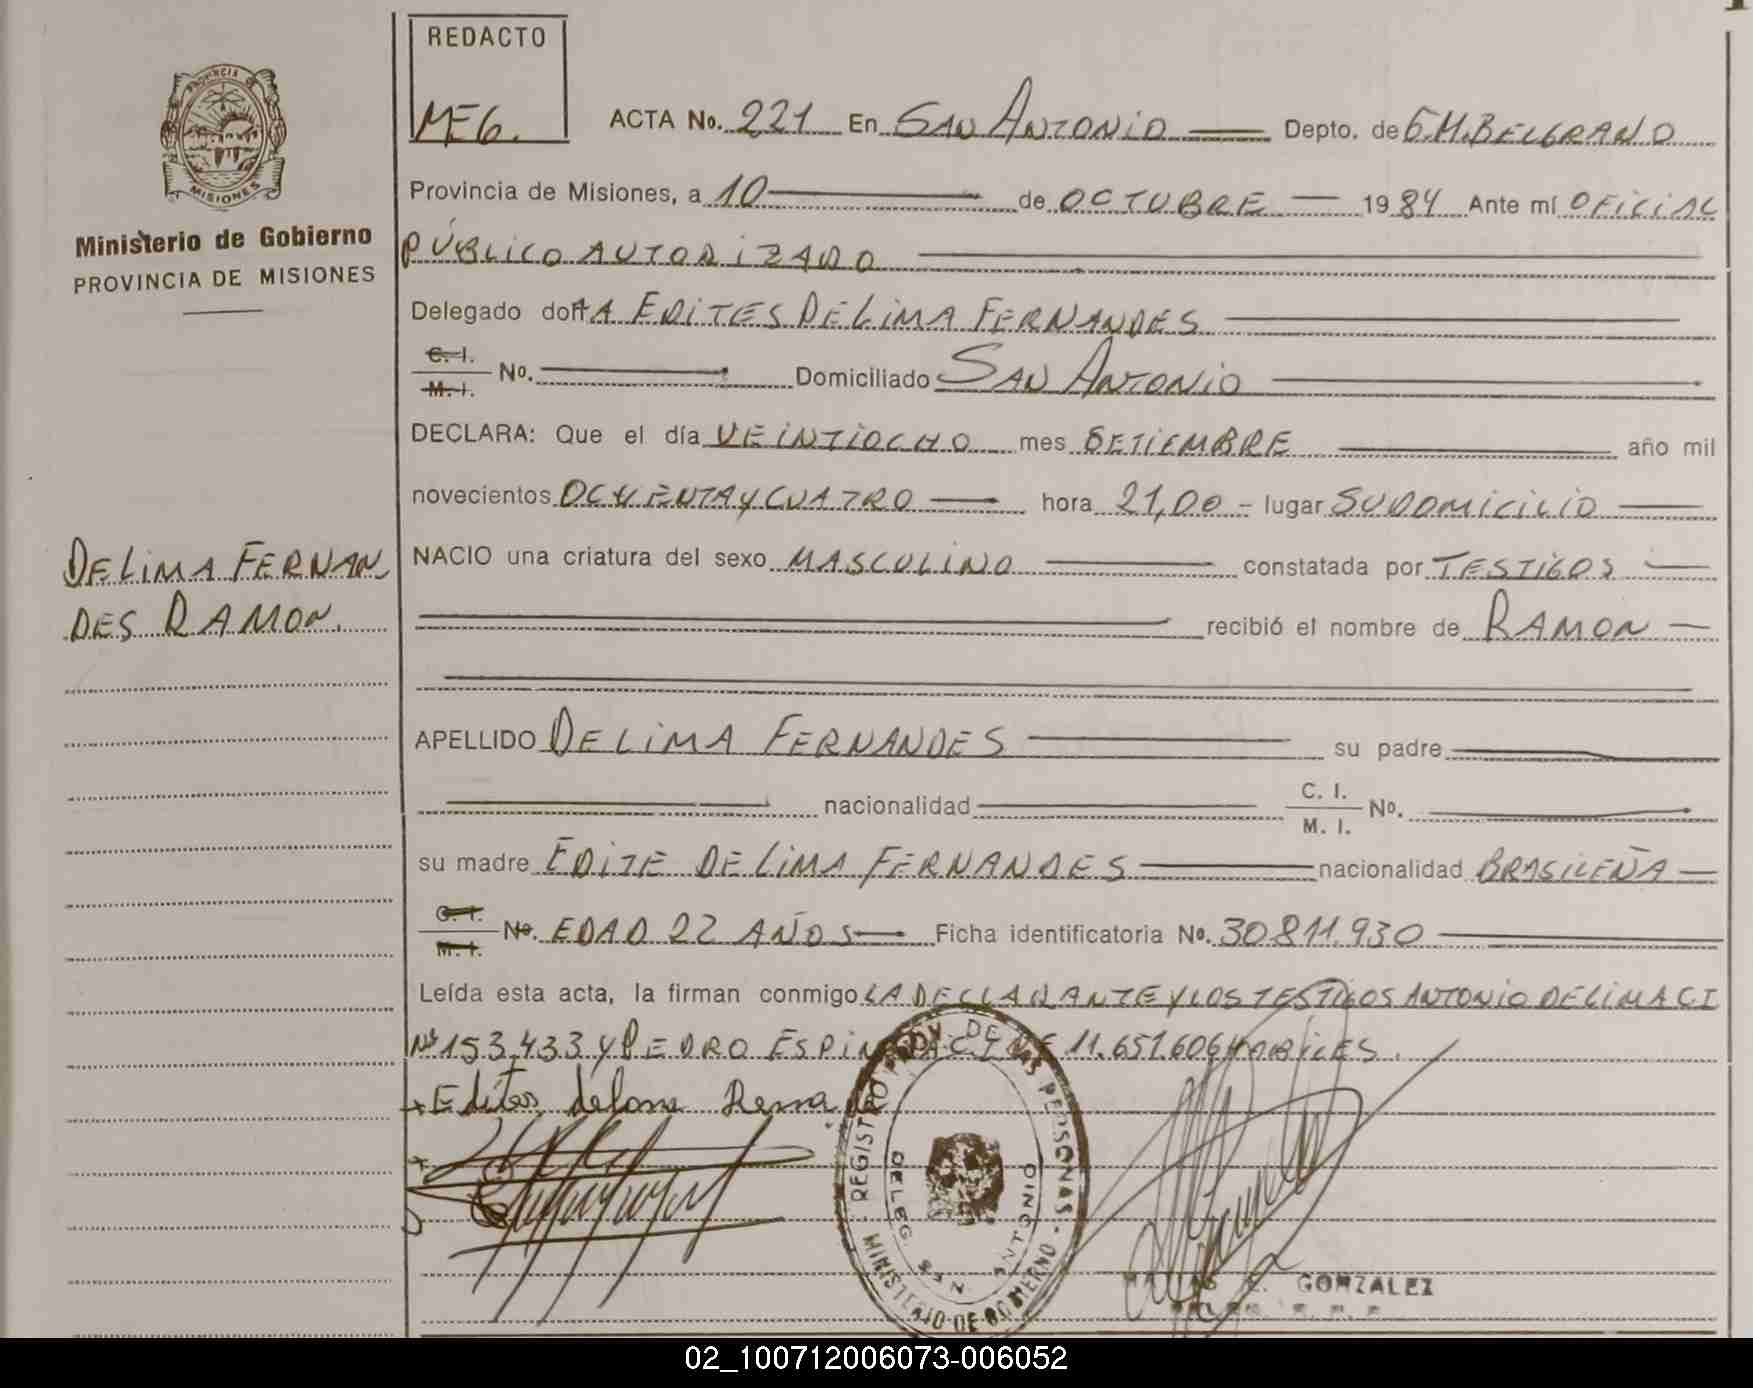 REDACTO
MEG.
ACTA No. 221 En SAN ANTONIO Depto. de G.M.BELGRANO
Provincia de Misiones, a 10 de OCTUBRE 1984 Ante mí OFICIAL
PÚBLICO AUTORIZADO
PROVINCIA DE
MISIONES
Ministerio de Gobierno
PROVINCIA DE MISIONES
Delegado doñA EDITES DE LIMA FERNANDES
C. I.
M. I.
No. Domiciliado SAN ANTONIO
DECLARA: Que el día VEINTIOCHO mes SETIEMBRE año mil
novecientos OCHENTA Y CUATRO hora 21,00 - lugar SU DOMICILIO
DE LIMA FERNAN
DES RAMON.
NACIO una criatura del sexo MASCULINO constatada por TESTIGOS
recibió el nombre de RAMON
APELLIDO DE LIMA FERNANDES su padre
nacionalidad C. I.
M. I. No.
su madre EDITE DE LIMA FERNANDES nacionalidad BRASILEÑA
C. I.
M. I.
No. EDAD 22 AÑOS Ficha identificatoria No. 30.811.930
Leída esta acta, la firman conmigo LA DECLARANTE Y LOS TESTIGOS ANTONIO DE LIMA CI
Nº 153.433 Y PEDRO 11.651.606 HABILES.
Edites delima
REGISTRO PROV. DE LAS PERSONAS - MINISTERIO DE GOBIERNO -
DELEG. SAN ANTONIO
GONZALEZ
02_100712006073-006052